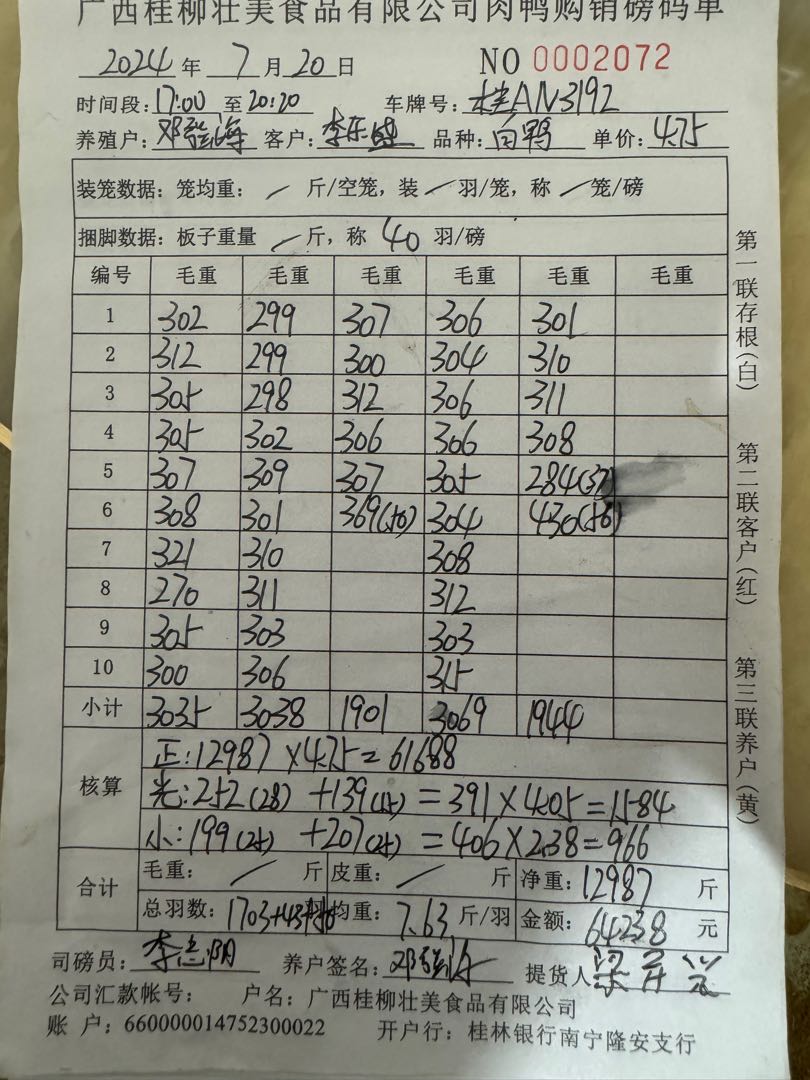 广西桂柳壮美食品有限公司肉鸭购销磅码单
2024 年 7 月 20 日 NO 0002072
时间段: 17:00 至 20:20 车牌号: 桂AN3192
养殖户: 邓强海 客户: 李乐 品种: 白鸭 单价: 4.75
装笼数据: 笼均重: / 斤/空笼, 装 / 羽/笼, 称 / 笼/磅
捆脚数据: 板子重量 / 斤, 称 40 羽/磅
编号 毛重 毛重 毛重 毛重 毛重 毛重
1 302 299 307 306 301
2 312 299 300 304 310
3 305 298 312 306 311
4 305 302 306 306 308
5 307 309 307 305 284(37)
6 308 301 369(50) 304 430(56)
7 321 310 308
8 270 311 312
9 305 303 303
10 300 306 315
小计 3035 3038 1901 3069 1944
核算
正: 12987 X 4.75 = 61688
光: 252(28) + 139(15) = 391 X 4.05 = 1584
小: 199(25) + 207(25) = 406 X 2.38 = 966
合计
毛重: / 斤 皮重: / 斤 净重: 12987 斤
总羽数: 1703+43+50 羽 均重: 7.63 斤/羽 金额: 64238 元
司磅员: 李 阴 养户签名: 邓强海 提货人
公司汇款帐号: 户名: 广西桂柳壮美食品有限公司
账 户: 660000014752300022 开户行: 桂林银行南宁隆安支行
第一联存根(白)
第二联客户(红)
第三联养户(黄)